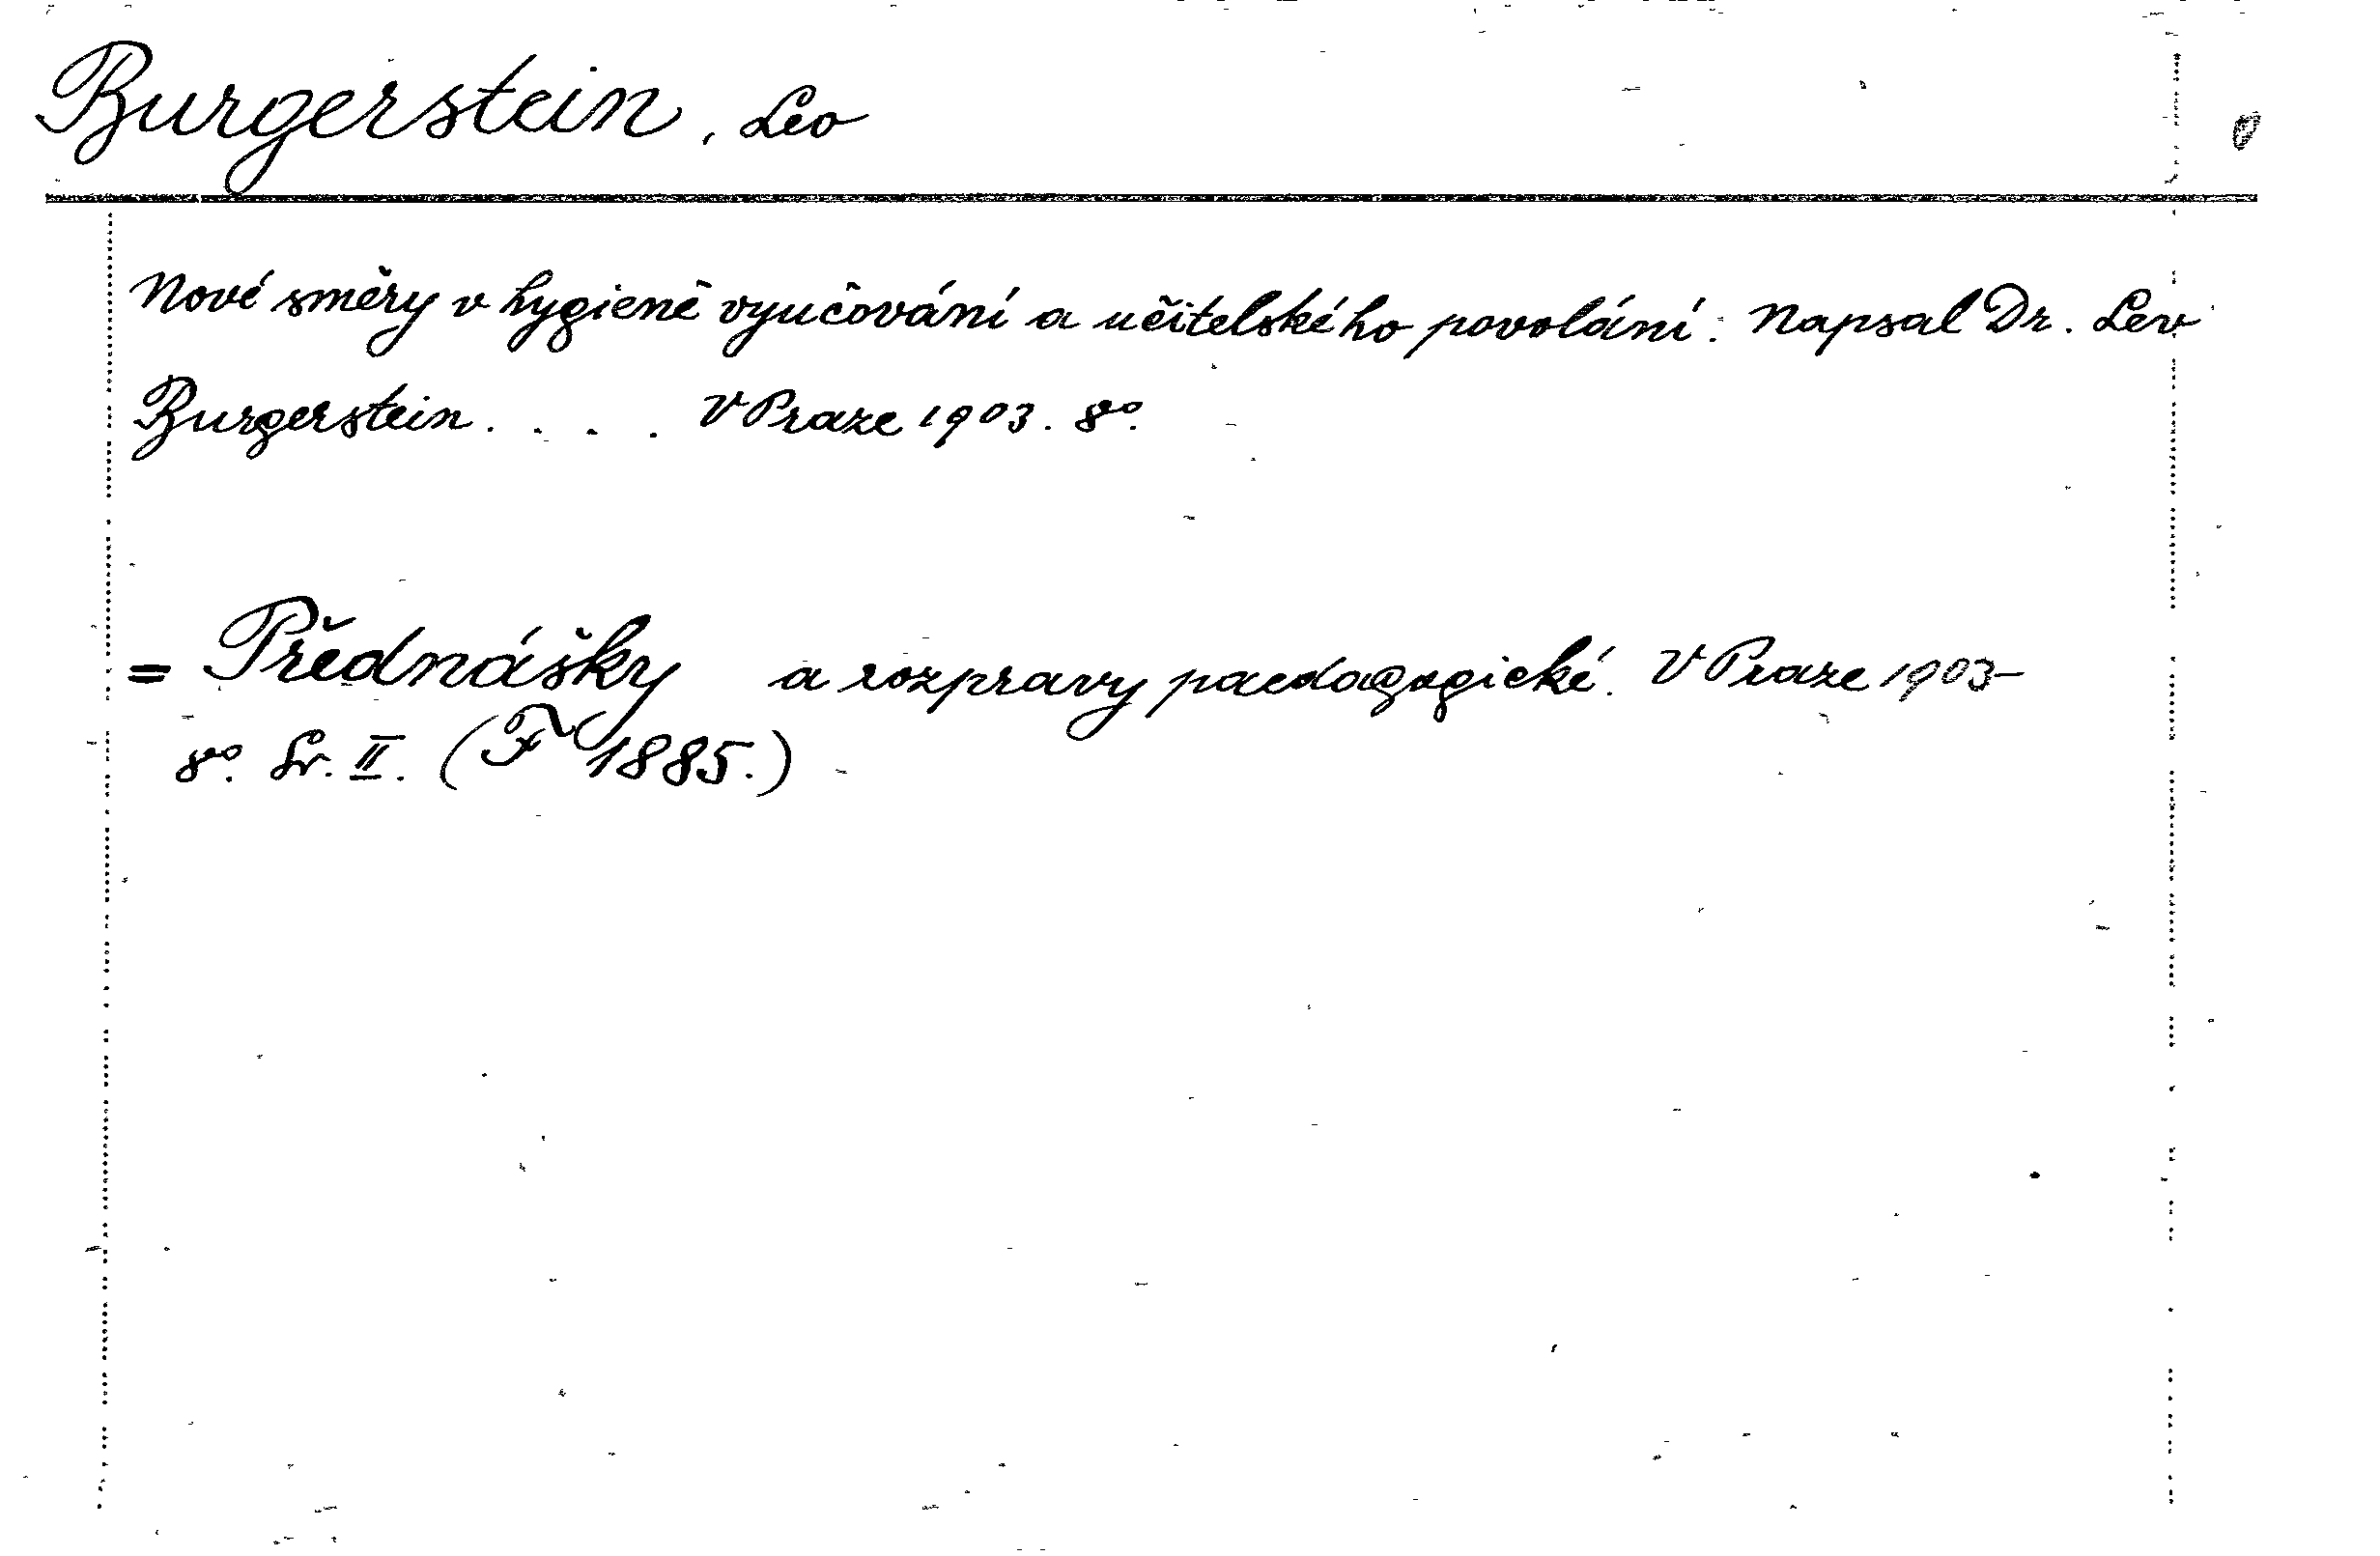 Burgerstein, Leo
Nové směry v hygieně vyučování a učitelského povolání. Napsal Dr. Lev
Burgerstein . . . . V Praze 1903. 8°.
= Přednášky a rozpravy paedagogické. V Praze 1903-
8°. Sv. II. (F 1885.)